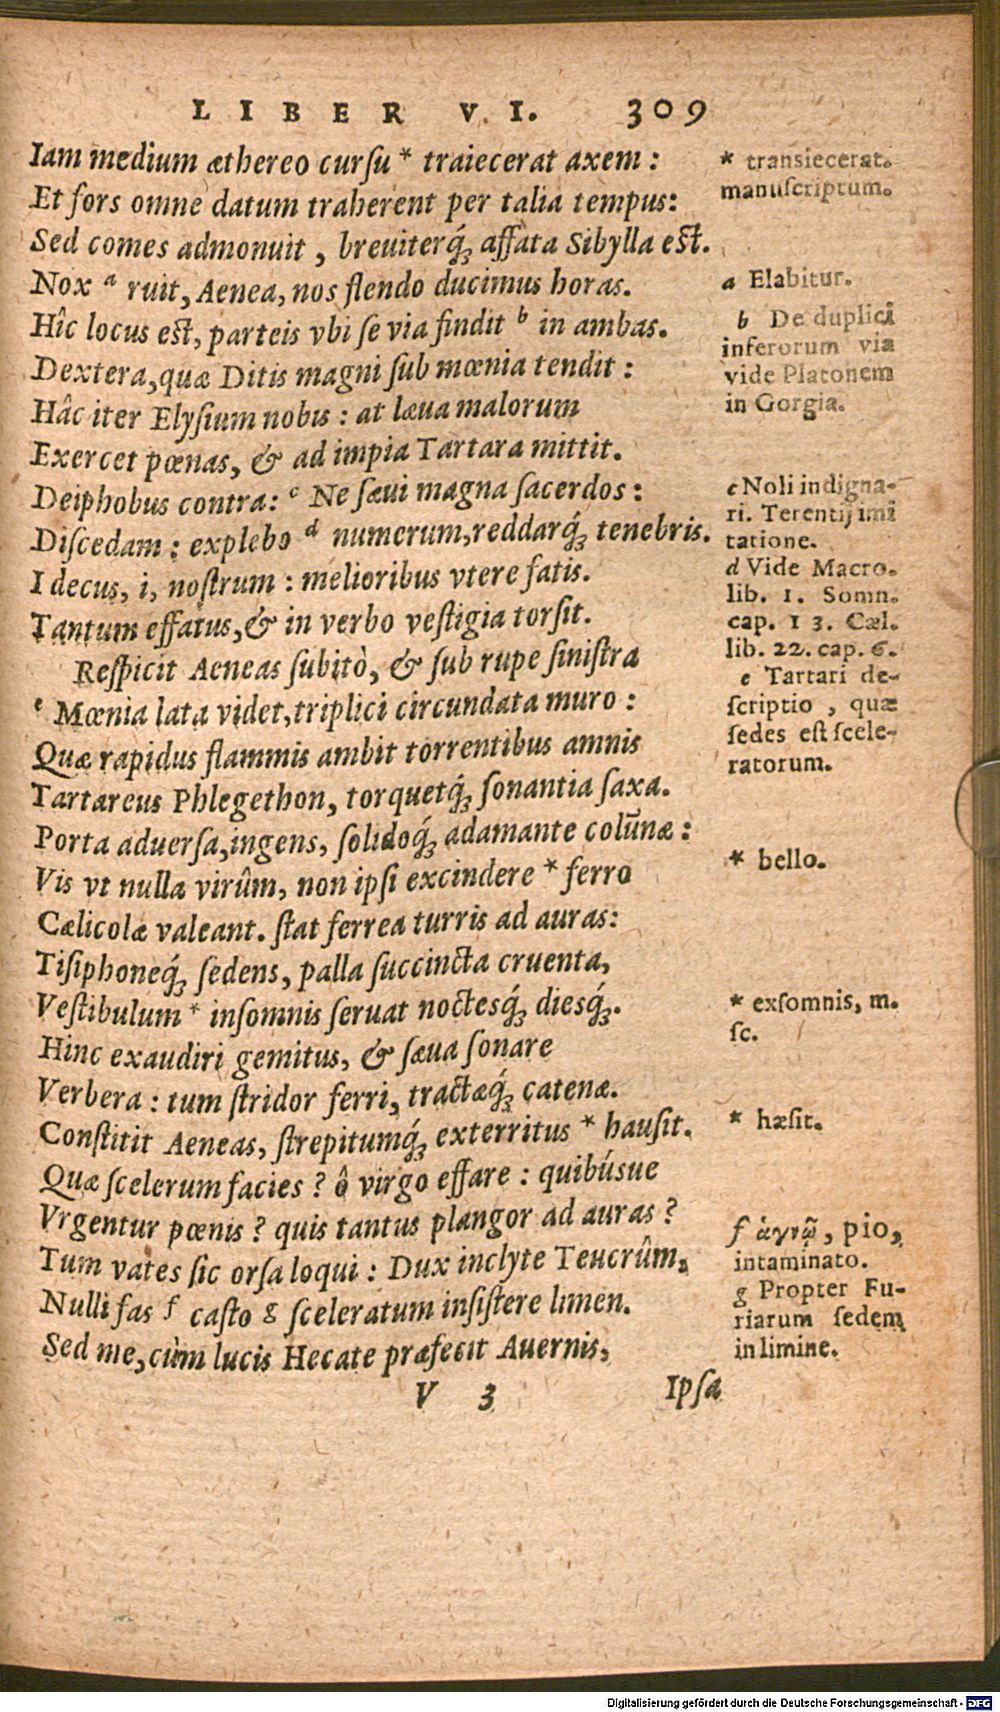 LIBER VI. 309
Iam medium æthereo cursu * traiecerat axem :
Et fors omne datum traherent per talia tempus:
Sed comes admonuit , breuiterq́ꝫ affata Sibylla est.
Nox a ruit, Aenea, nos flendo ducimus horas.
Hîc locus est, parteis vbi se via findit b in ambas.
Dextera, quæ Ditis magni sub mœnia tendit :
Hâc iter Elysium nobis : at læua malorum
Exercet pœnas, & ad impia Tartara mittit.
Deiphobus contra: c Ne sæui magna sacerdos :
Discedam : explebo d numerum, reddarq́ꝫ tenebris.
I decus, i, nostrum : melioribus vtere fatis.
Tantum effatus, & in verbo vestigia torsit.
Respicit Aeneas subitò, & sub rupe sinistra
e Mœnia lata videt, triplici circundata muro :
Quæ rapidus flammis ambit torrentibus amnis
Tartareus Phlegethon, torquetq́ꝫ sonantia saxa.
Porta aduersa, ingens, solidoq́ꝫ adamante colūnæ :
Vis vt nulla virûm, non ipsi excindere * ferro
Cælicolæ valeant. stat ferrea turris ad auras:
Tisiphoneq́ꝫ sedens, palla succincta cruenta,
Vestibulum * insomnis seruat noctesq́ꝫ diesq́ꝫ.
Hinc exaudiri gemitus, & sæua sonare
Verbera : tum stridor ferri, tractæq́ꝫ catenæ.
Constitit Aeneas, strepitumq́ꝫ exterritus * hausit.
Quæ scelerum facies ? ô virgo effare : quibúsue
Vrgentur pœnis ? quis tantus plangor ad auras ?
Tum vates sic orsa loqui : Dux inclyte Teucrûm,
Nulli fas f casto g sceleratum insistere limen.
Sed me, cùm lucis Hecate præfecit Auernis,
V 3 Ipsa
* transiecerat.
manuscriptum.
a Elabitur.
b De duplici
inferorum via
vide Platonem
in Gorgia.
c Noli indigna-
ri. Terentij imi
tatione.
d Vide Macro.
lib. 1. Somn.
cap. 13. Cæl.
lib. 22. cap. 6.
e Tartari de-
scriptio , quæ
sedes est scele-
ratorum.
* bello.
* exsomnis, m.
sc.
* hæsit.
f ἁγνῷ, pio,
intaminato.
g Propter Fu-
riarum sedem
in limine.
Digitalisierung gefördert durch die Deutsche Forschungsgemeinschaft - DFG